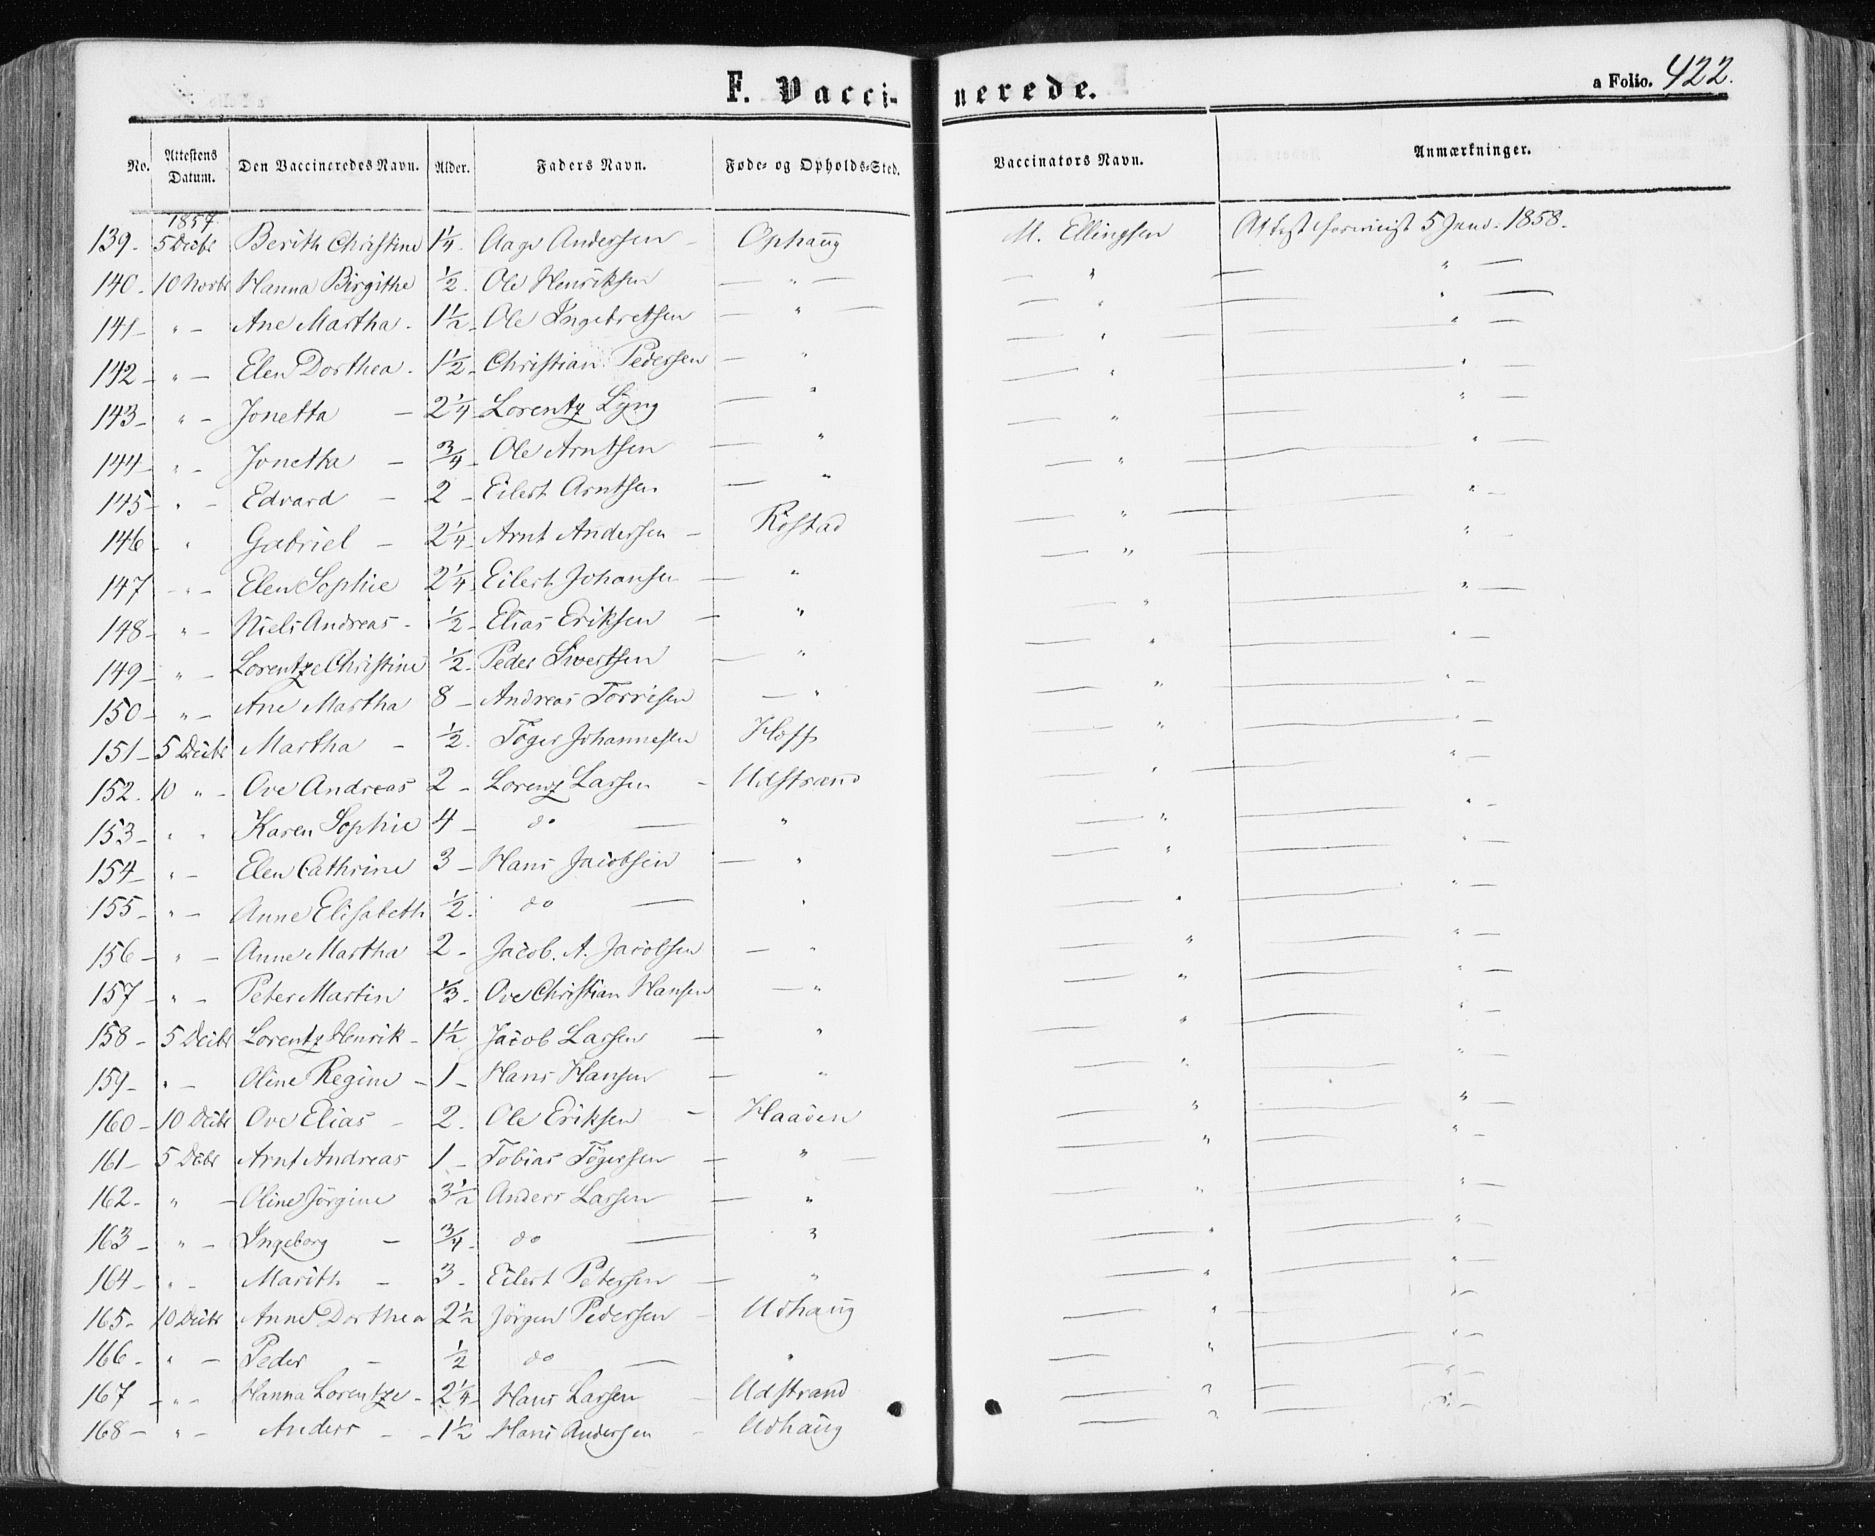 F. Vacci- nerede. a Folio. 422.
No. Attestens Datum. Den Vaccineredes Navn. Alder. Faders Navn. Føde- og Opholds-Sted. Vaccinators Navn. Anmærkninger.
1857.
139. 5 Decbr Berith Christine 1¼. Aage Andersen - Ophaug M. Ellingsen 5 Janu. 1858.
140. 10 Novbr Hanna Birgithe ½. Ole Henriksen — " — — " — " —
141 - " - Ane Martha. 1½ Ole Ingebretsen — " — — " — " —
142 - " - Elen Dorthea. 1½ Christian Pedersen — " — " — "
143 - " - Jonetta - 2¼ Lorentz Lyng — " — " — "
144 - " - Jonetta - ¾ Ole Arntsen — " — " — "
145 " - Edvard - 2 - Eilert Arntsen — " — " — "
146 - " Gabriel - 2¼ Arnt Andersen - Røstad — " — " -
147 - " - Elen Sophie 2¼ Eilert Johansen — " — " — "
148 - " - Niels Andreas - ½ Elias Eriksen — " — " — " -
149 - " - Lorentze Christine ½ Peder Sivertsen — " — " — " -
150 - " - Ane Martha 8 - Andreas Torrisen — " — " — " -
151 - 5 Decbr Martha - ½. Töger Johannesen Hoff — " — " -
152. 10 " - Ove Andreas 2 - Lorenz Larsen - Udstrand — " — " -
153 - " " Karen Sophie 4 - do — " — " — " -
154 - " - Elen Cathrine 3 - Hans Jacobsen — " — " — " -
155 - " - Anne Elisabeth ½. do — " — " — " -
156 - " - Anne Martha 2 - Jacob. A. Jacobsen — " — " — " -
157 - " - Peter Martin ⅓. Ove Christian Hansen — " — " — " -
158 - 5 Decbr Lorentz Henrik - 1½ Jacob Larsen — " — " — " -
159 - " - Oline Regine - 1 - Hans Hansen — " — " — " -
160 - 10 Decbr Ove Elias - 2. Ole Eriksen - Haaven — " — " -
161 - 5 Decbr Arnt Andreas 1 - Tobias Tögersen — " — — " — " -
162. " - Oline Jörgine 3½ Anders Larsen — " — " — " -
163 - " - Ingeborg - ¾. do — " — " — " -
164 - " - Marith - 3 - Eilert Petersen — " — " — " -
165. 10 Decbr Anne Dorthea 2½ Jörgen Pedersen - Udhaug — " — " -
166 - " - Peder - ½ do — " — " — " -
167 - " - Hanna Lorentze - 2¼ Hans Larsen - Udstrand — " — " -
168 - " - Anders - - 1½ Hans Andersen - Udhaug — " — " -